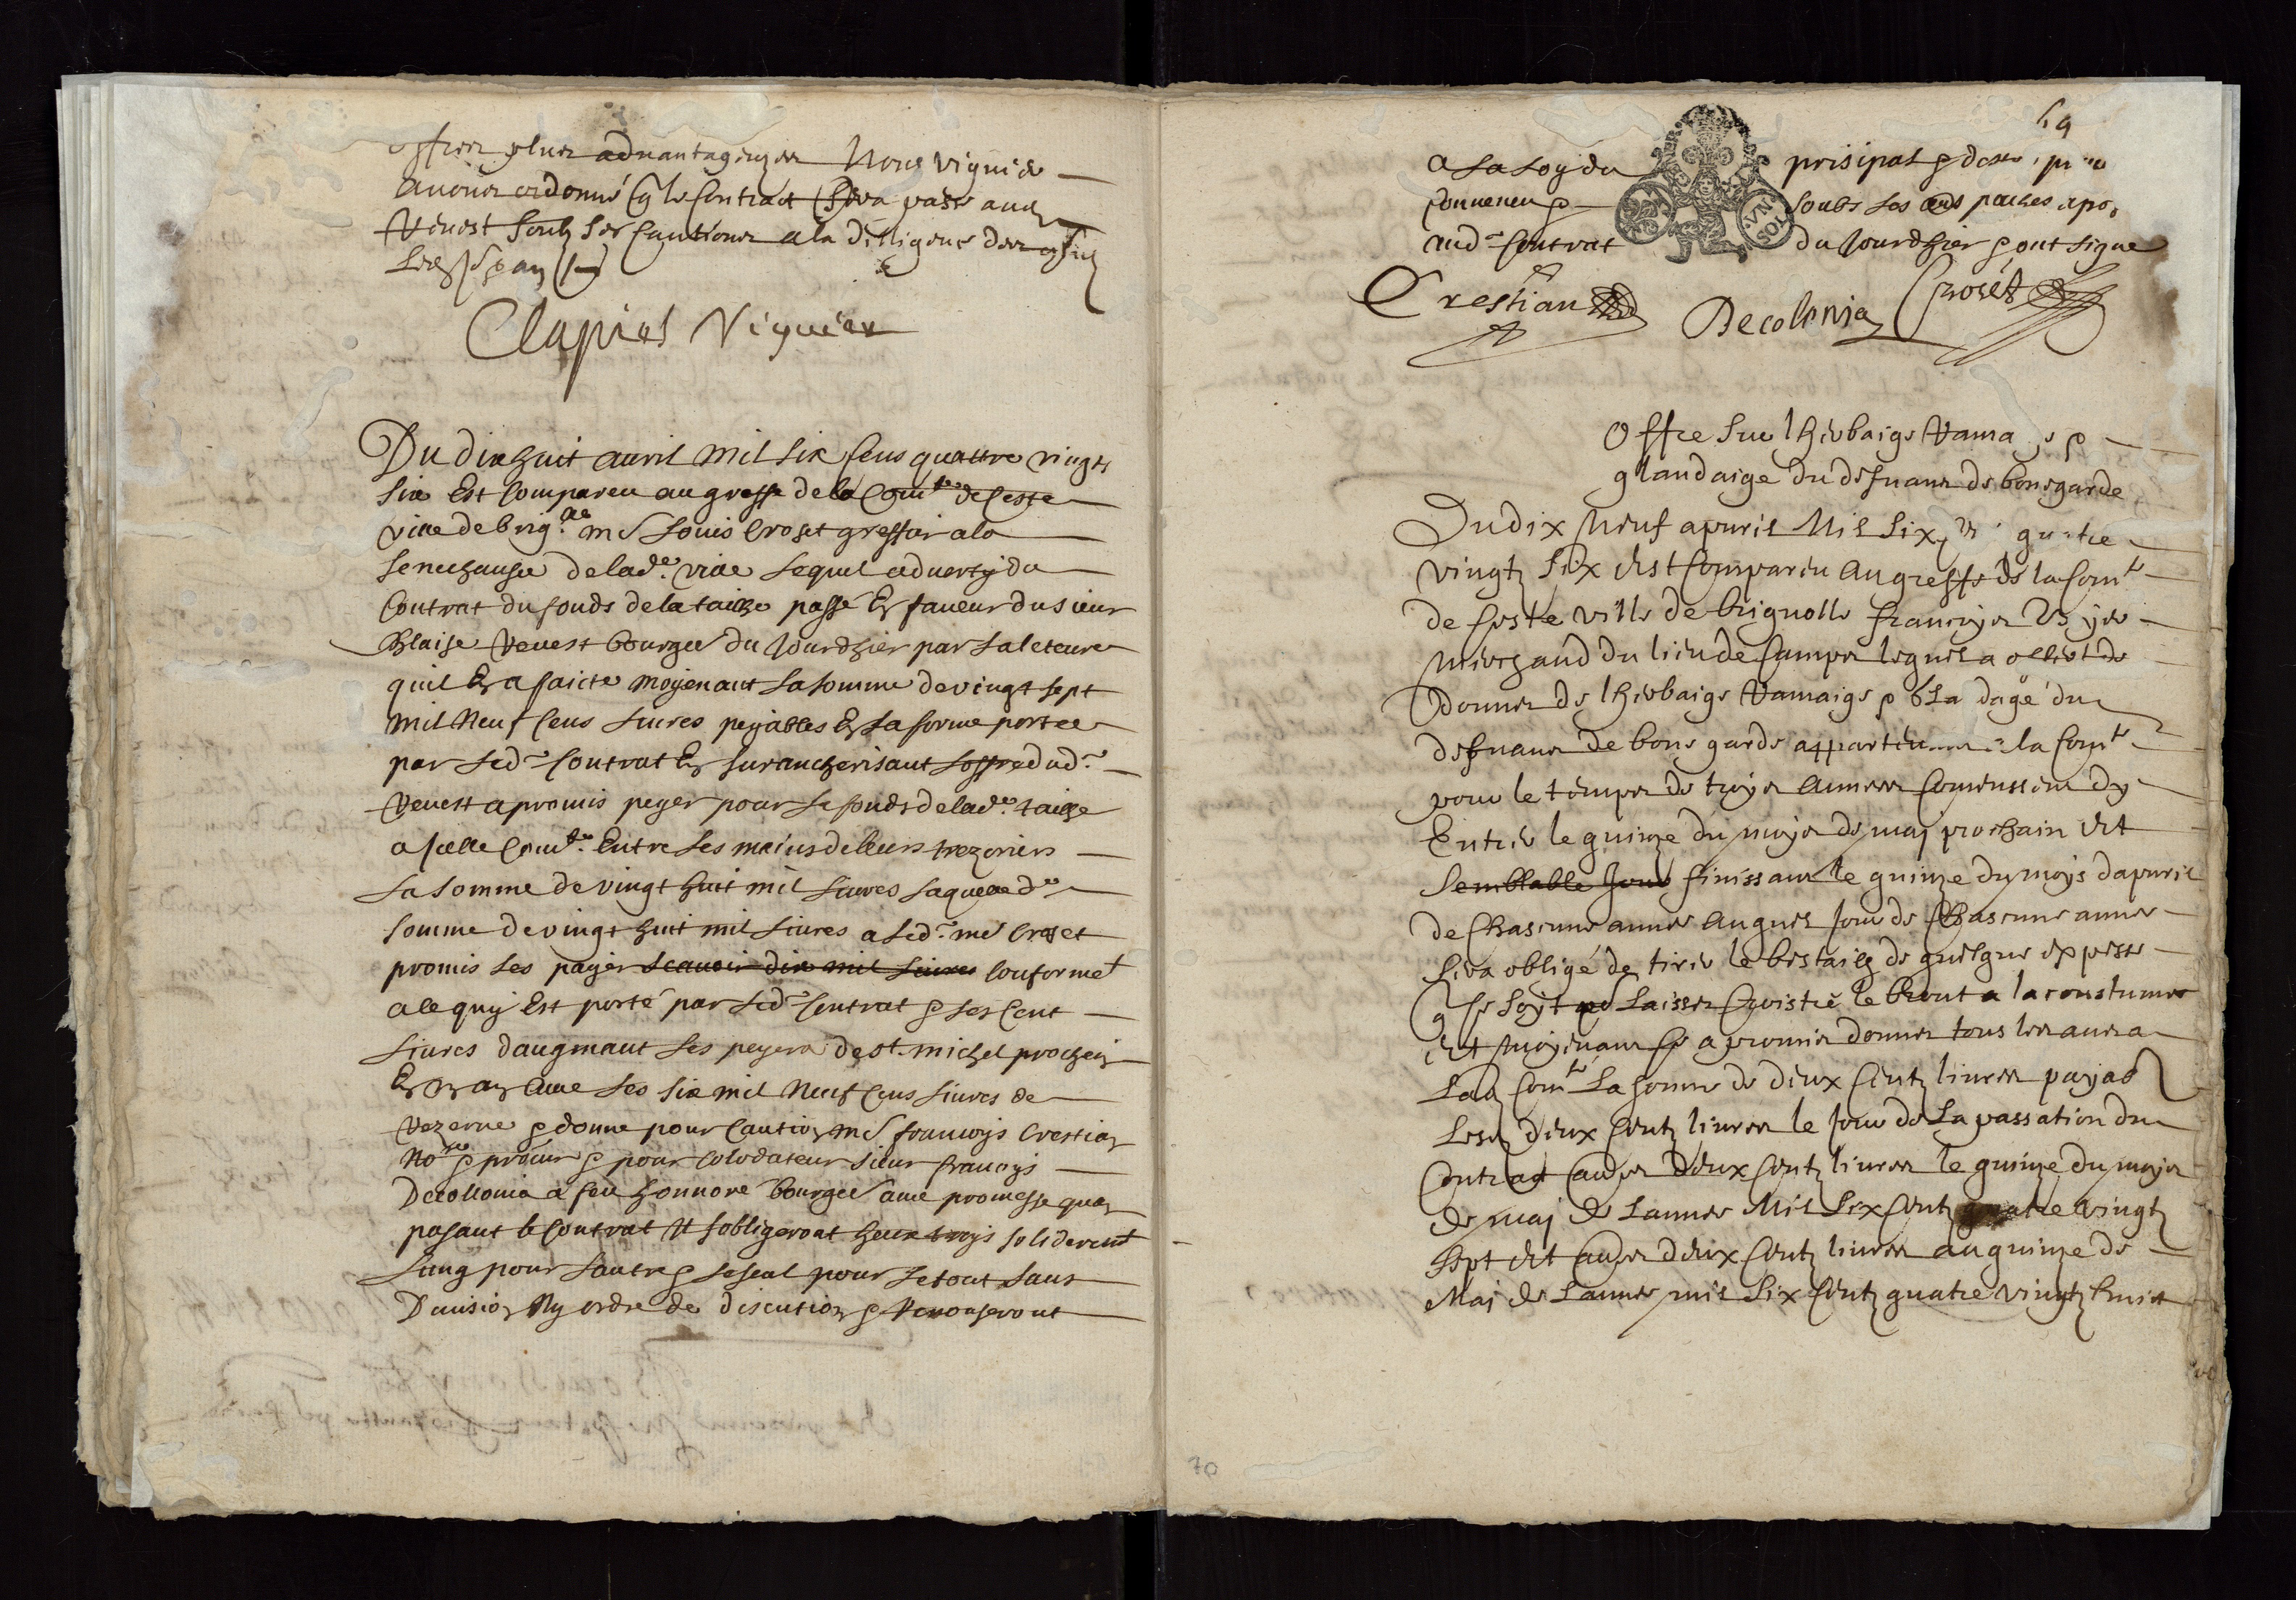 offres plus advantageuzes Nous viguier
avons ordonné q le contract sera passé aud
Venest soubz ses cautions a la dilligence des
Clapiers Viguier
Du dix huit avril mil six cens quattre vingts
six est compareu au greffe de la com^te de ceste
ville de brig^lle m^e Louis Croset greffier a la
senechausse de lad^e ville lequel adverty du
contrat du fonds de la taille passé en faveur du sieur
Blaise Venest bourgee du jourdhier par la leteure
quil en a faicte moyenant la somme de vingt sept
mil neuf cens livres peyables en la forme portee
par led^t contrat en surancherisant loffre dud^t
Venest a promis peyer pour le fonds de lad^e taille
a icelle com^te entre les mains de leurs trezoriers
la somme de vingt huit mil livres laquelle d^e
somme de vingt huit mil livres a led^t m^e Croset
promis les payer scavoir dix mil livres conformet
a ce quy est porté par led^t contrat & les cent
livres daugmant les peyera de st michel prochein
en un an avec les six mil neuf cens livres de
rezerve & donne pour caution m^e francoys Crestian
no^re & procur & pour colodateur sieur francoys
Decollonia a feu honnore bourgee avec promesse quan
pasant le contrat ils sobligeront heux troys soliderent
lung pour lautre & le seul pour le tout sans
Division ny ordre de discution & renonseront
69
a la loy du prisipal & des
conveneu & soubs les paches apo
aud^t contrat du jourdhier & ont signe
Crestian Decolonia Croset
Offre sur lherbaige &
glandaige du defnans de bonegarde
Du dix neuf apvril mil six quatre
vingtz six est compareu au greffe de la com^te
de ceste ville de brignolle francoys
merchand du lieu de Camps lequel a offert de
donner de lherbaige ramaige & du
defnans de bone garde la com^te
pour le temps de troys annees comenssant dy
entrer le quinze du moys de maj prochain et
semblable jour finissant le quinze du moys dapvril
de chascune annee auquel jour de chascune annee
sera obligé de tirer le bestailh de quelque expesse
q ce soyt laisser croistre le brout a la coustumee
et moyenant ce a promis donner tous les ans a
lad com^te la somme de deux centz livres payab
lesd deux centz livres le jour de la passation du
contrat deux centz livres le quinze du moys
de maj de lannee mil six centz quatre vingtz
sept et deux centz livres au quinze de
Maj de lannee mil six centz quatre vingtz huit
70